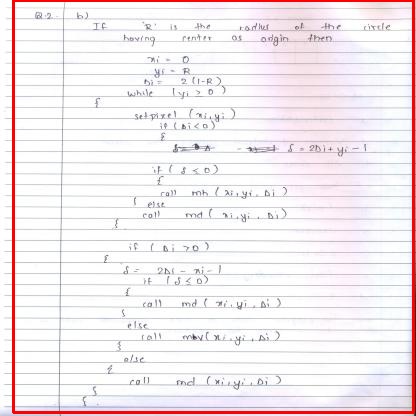 Q.2. b)
If 'R' is the radius of the circle
having center as origin then
xi = 0
yi = R
Di = 2(1-R)
while (yi > 0)
{
setpixel (xi, yi)
if (Di < 0)
{
δ = 2Di + yi - 1
if (δ ≤ 0)
{
call mh (xi, yi, Di)
{ else
call md (xi, yi, Di)
{
if (Di > 0)
{
δ = 2Di - xi - 1
if (δ ≤ 0)
{
call md (xi, yi, Di)
}
else
call mv (xi, yi, Di)
}
else
{
call md (xi, yi, Di)
}
}